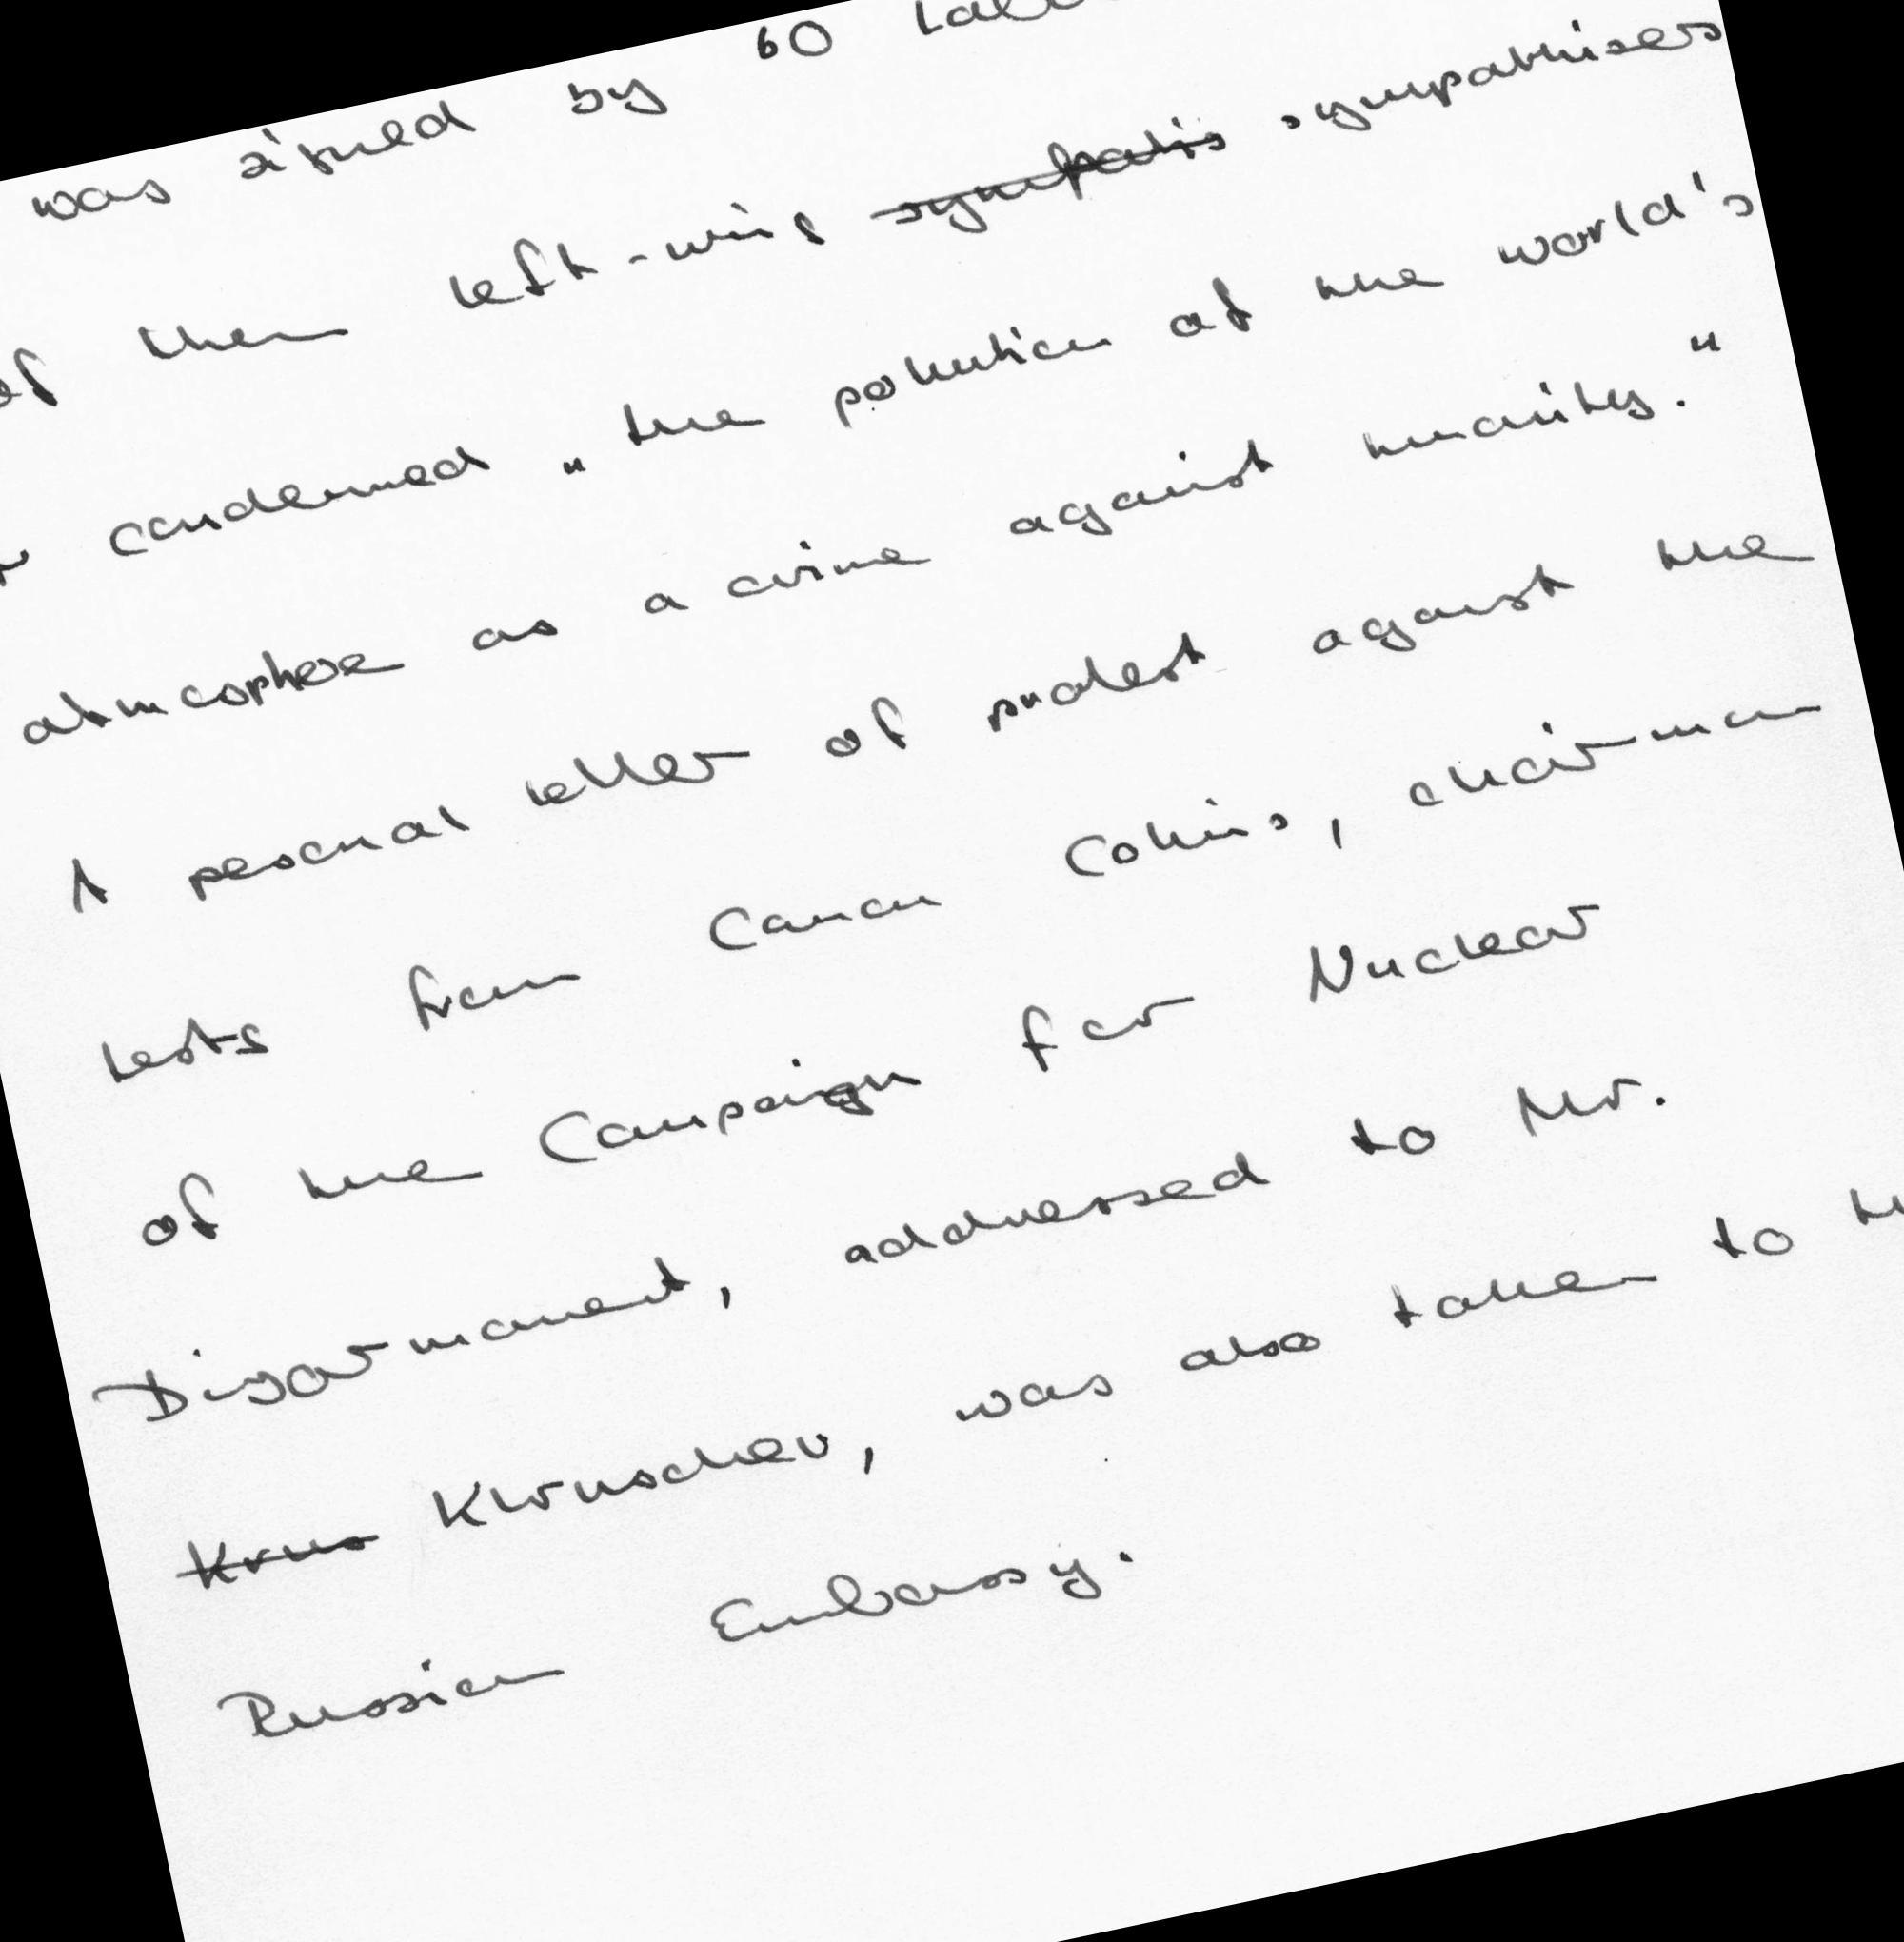 was signed by 60
of them left-wing sympathisers
condemned "the pollution of the world's
atmosphere as a crime against humanity."
A personal letter of protest against the
tests from Canon Collins, chairman
of the Campaign for Nuclear
Disarmament, addressed to Mr.
Khruschev, was also taken to
Russian Embassy.